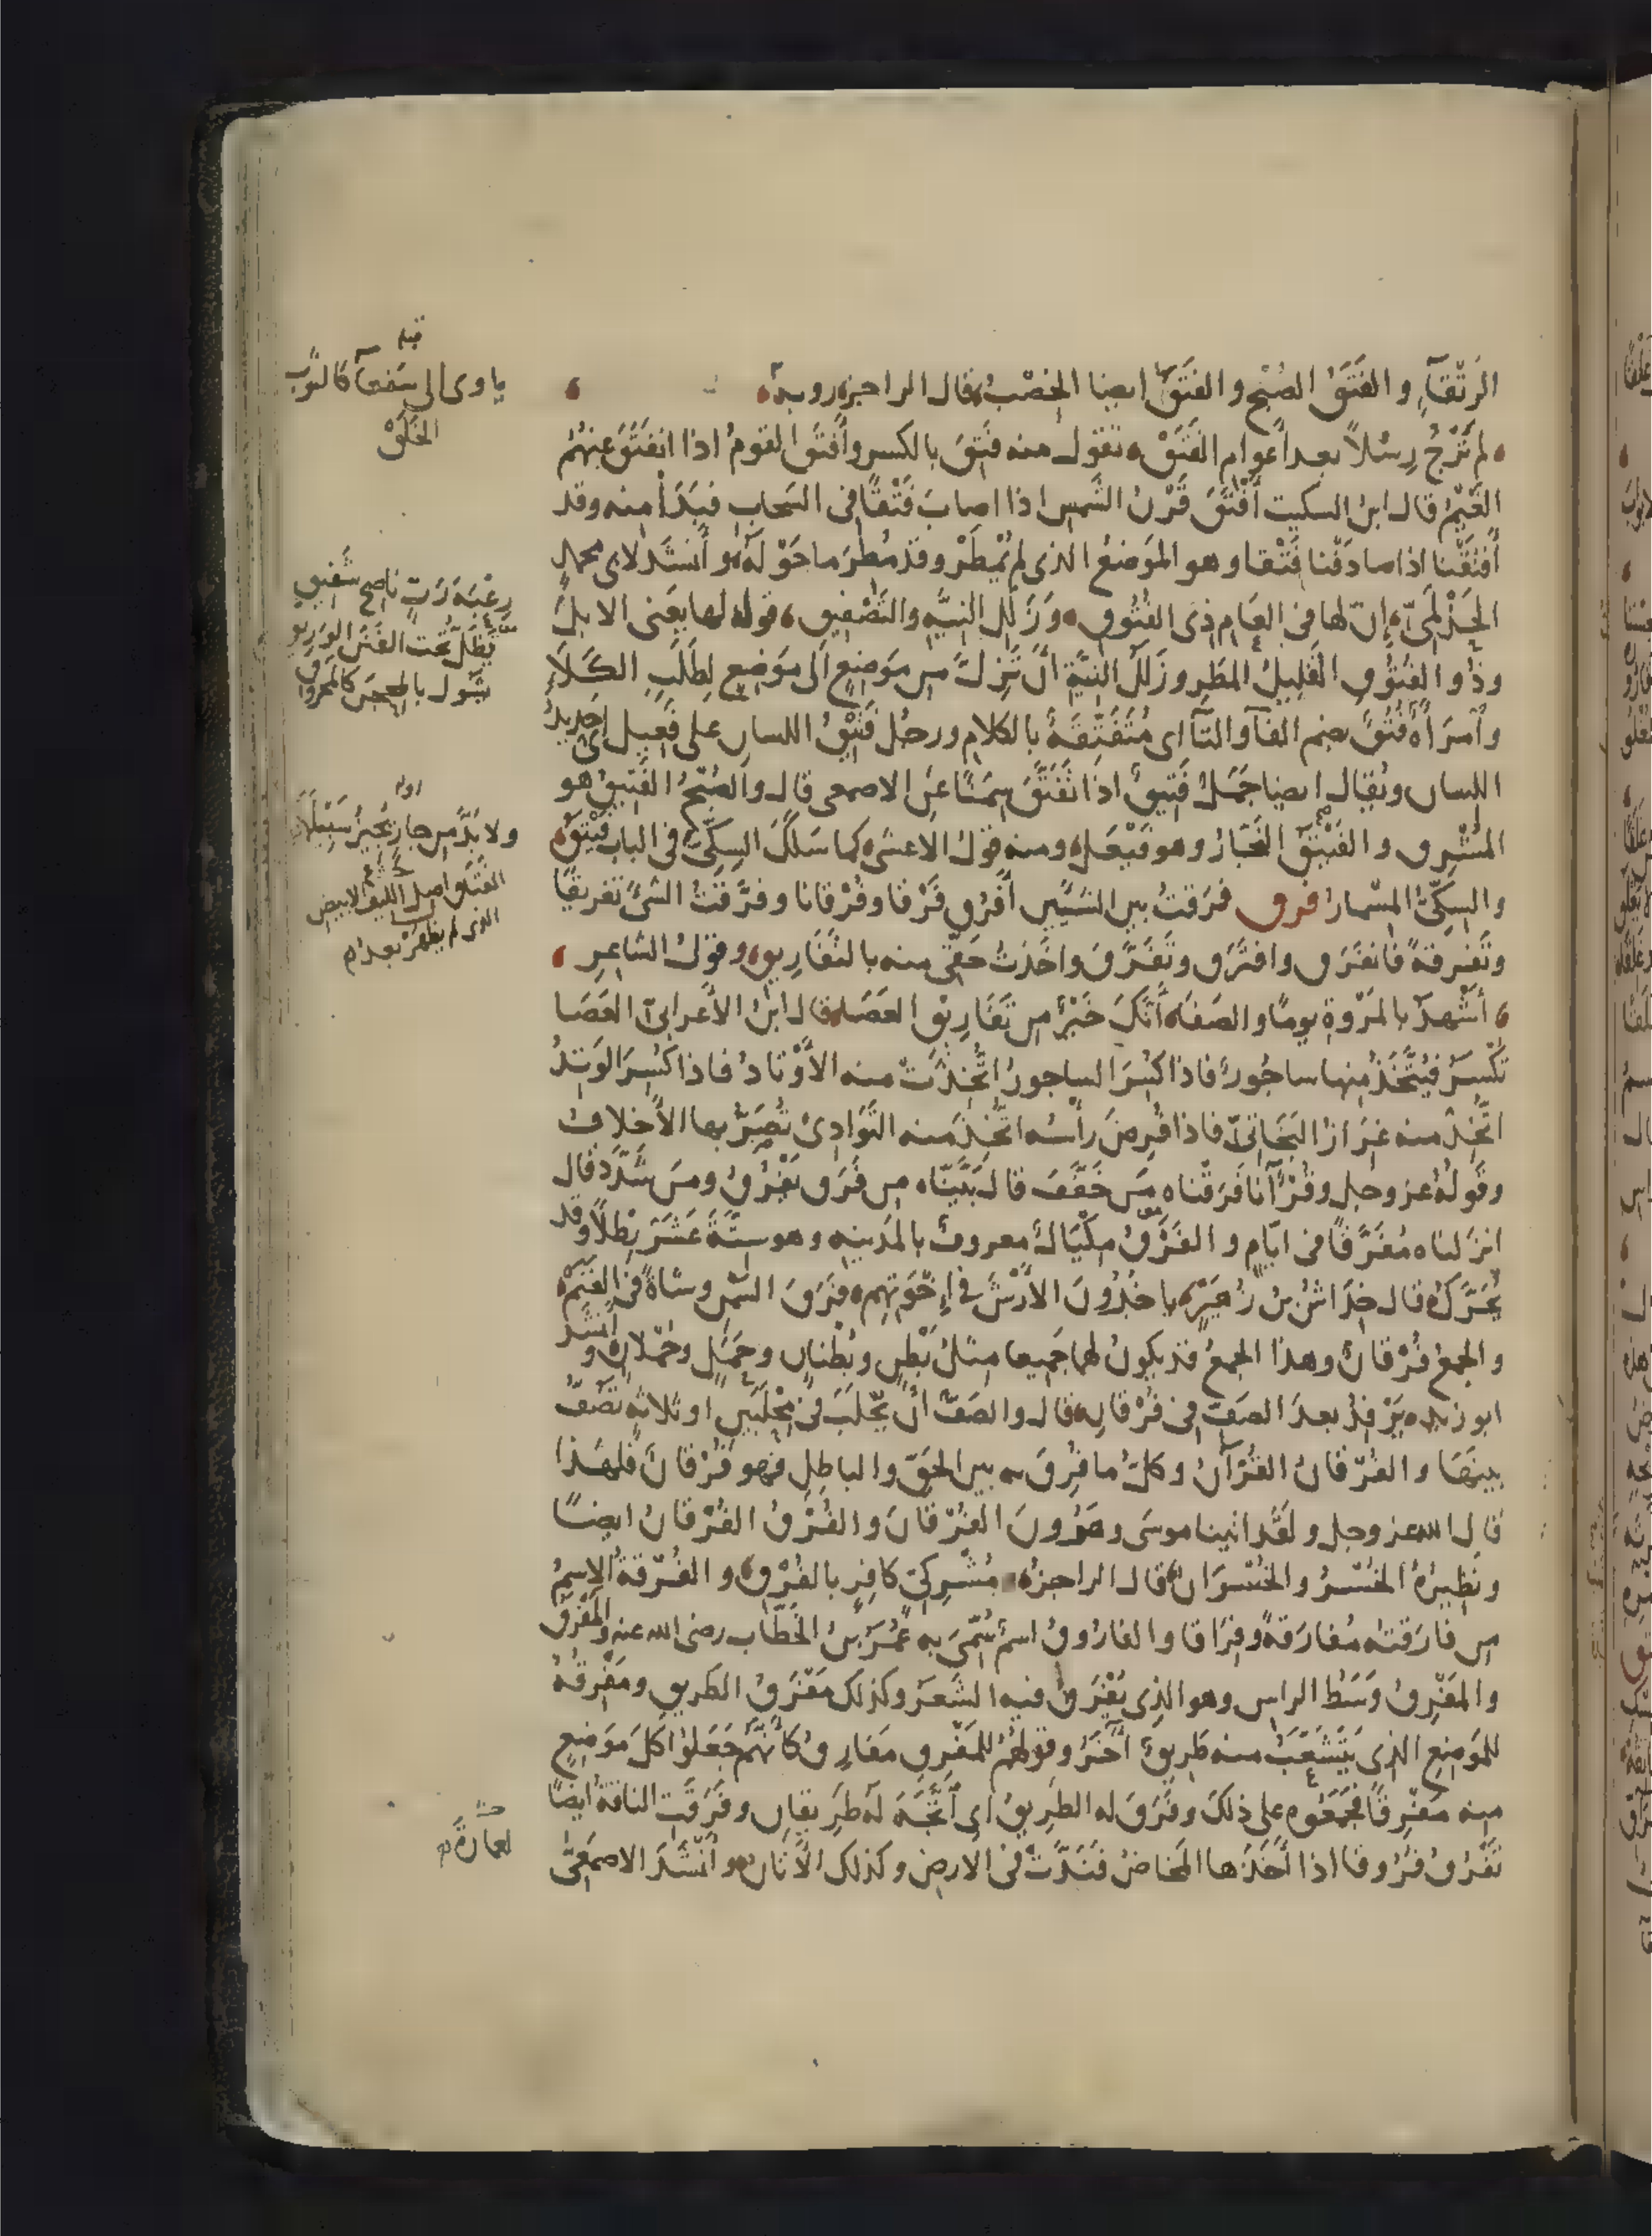 الرَتْقَآءِ والفَتَقُ الصُبْح والفَتَقُ ايضا الخِصْبُ قال الراجز روبة
لم تَرْجُ رِسْلاً بعد أعوام الفَتَقْ تقول منه فَتِقَ بالكسر وأَفْتَقَ القومُ اذا انفَتَقَ عنهم
الغَيْمُ قال ابن السكيت أَفْتَقَ قَرْنُ الشمس اذا اصابَ فَتْقًا في السَحاب فَبَدَأ منه وقد
أَفْتَقْنا اذا صادَفْنا فَتْقا وهو المَوْضعُ الذى لم يُمْطَرْ وقد مُطِرَ ما حَوْلَه وأَنْشَدَ لابى محمد
الحَذْلَمِىّ إنّ لها في العَام ذى الفُتُوق وَزَلَلِ النِيَّة والتَصْفيق قوله لها يعنى الابلَ
وذُو الفُتُوقِ القَلِيلُ المَطَرِ وزَلَلُ النِيَّةِ أَنْ تَزِلَّ من مَوْضِعٍ الى مَوْضِعٍ لِطَلَبِ الكَلَأِ
وآمرَأةٌ فُتُقٌ بضم الفآ والتآ اى مُتَفَتِّقَةٌ بالكلام ورجُل فَتِيقُ اللسان على فَعِيل اى حَدِيدُ
اللسان ويُقال ايضا جَمَلٌ فَتِيقٌ اذا تَفَتَّقَ سِمَنًا عَنِ الاصمعى قال والصُبْحُ الفَتِيقُ هو
المُشْرِق والفَيْتَقُ النَجّارُ وهو فَيْعَل ومنه قولُ الاعشى كما سَلَكَ السِكِّىَّ في الباب فَيْتَقُ
والسِكِّىُّ المِسْمارُ فرق فَرَقتُ بين الشيئين أَفْرُقُ فَرْقا وفُرْقانا وفَرَّقتُ الشىءَ تفريقًا
وتَفْرِقةً فانفَرَق وافتَرَق وتَفَرَّقَ واخَذتُ حَقّى منه بالتَفَارِيق وقولُ الشاعر
أَشْهَدُ بالمَرْوةِ يومًا والصَفَا أَنّكَ خَيْرٌ من تَفَارِيقِ العَصَا قال ابنُ الأعرابىّ العَصَا
تُكْسَرُ فيُتَّخَذُ مِنها ساجُورٌ فاذا كُسِرَ الساجورُ اتُّخِذَتْ منه الأَوْتادُ فاذا كُسِرَ الوَتِدُ
اتُّخِذَ منه عِرَانُ البَخَاتىّ فاذا قُرِضَ رأسُه اتُّخِذَ منه التَوَادِى تُصَرُّ بها الأَخلافُ
وقَولُهُ عز وجل وقُرْآنًا فَرَقْناه مَن خَفَّفَ قال بَيَّنّاه مِن فَرَق يَفْرُقُ ومَن شَدَّد قال
انزلناه مُفَرَّقًا في ايّامٍ والفَرْقُ مِكْيَالٌ معروفٌ بالمَدِينة وهو سِتَّةَ عَشَرَ رِطْلاً وقد
يُحَرَّكُ قال خِدَاشُ بنُ زُهَيْرٍ ياخُذُونَ الأَرْشَ في إِخْوَتِهِم فَرَقَ السَمْنِ وشاةً في الغَنَمْ
والجمعُ فُرْقانٌ وهذا الجمعُ قد يكونُ لهما جَميعا مثلُ بَطْنٍ وبُطْنانٍ وحَمَلٍ وحُمْلانٍ وأَنشَدَ
ابو زيد يَرْفِدُ بعدَ الصَفّ في فُرْقانِ قال والصَفّ أَن يَحْلَبَ في مِحْلَبَيْنِ او ثلاثةٍ تَصُفُّ
بينَها والفُرْقانُ القُرْآنُ وكلُّ ما فُرِقَ به بين الحقّ والباطِلِ فهو فُرْقانٌ فلهذا
قال الله عز وجل ولقَد اتَينا موسَى وهَرُونَ الفُرْقانَ والفُرْقُ الفُرْقانُ ايضًا
ونَظِيرُهُ الخُسْرُ والخُسْرَانُ قال الراجز مُشْرِكِىٍّ كافِرٍ بالفُرْقِ والفُرْقةُ الاسمُ
من فارَقْتُه مُفارَقةً وفِرَاقا والفارُوقُ اسمٌ سُمِّىَ به عُمَرُ بنُ الخَطّاب رضى الله عنه والمَفْرَقُ
والمَفْرِقُ وَسَطُ الراس وهو الذِى يُفْرَقُ فيه الشَعَرُ وكذلك مَفْرَقُ الطريقِ ومَفْرِقُهُ
للمَوْضِعِ الذى يَتَشَعَّبُ منه طَرِيقٌ آخَرُ وقولهُم للمَفْرِقِ مَفارِقُ كأنّهم جَعَلوا كلَّ مَوْضِعٍ
منه مَفْرِقًا فجَمَعُوه على ذلكَ وفَرَقَ له الطَرِيقُ اى اتَّجَهَ لَه طَرِيقانِ وفَرَقَتِ الناقةُ ايضًا
تَفْرُقُ فُرُوقا اذا أَخَذَها المَخاضُ فنَدَّتْ في الارض وكذلك الأَتَانُ وأَنْشَدَ الاصمَعىّ
ياوى الى سَفعآ كالثوب
الخَلَقْ
رعْيَةَ رَبٍّ ناصِحٍ شَفيقِ
يَظَلُّ تحت الفَنَنِ الوَرِيقِ
يَشُولُ بالمِحْجَن كالمَحْروقِ
اوله
ولا بُدَّ من جارٍ يُجيزُ سَبِيلَهَا